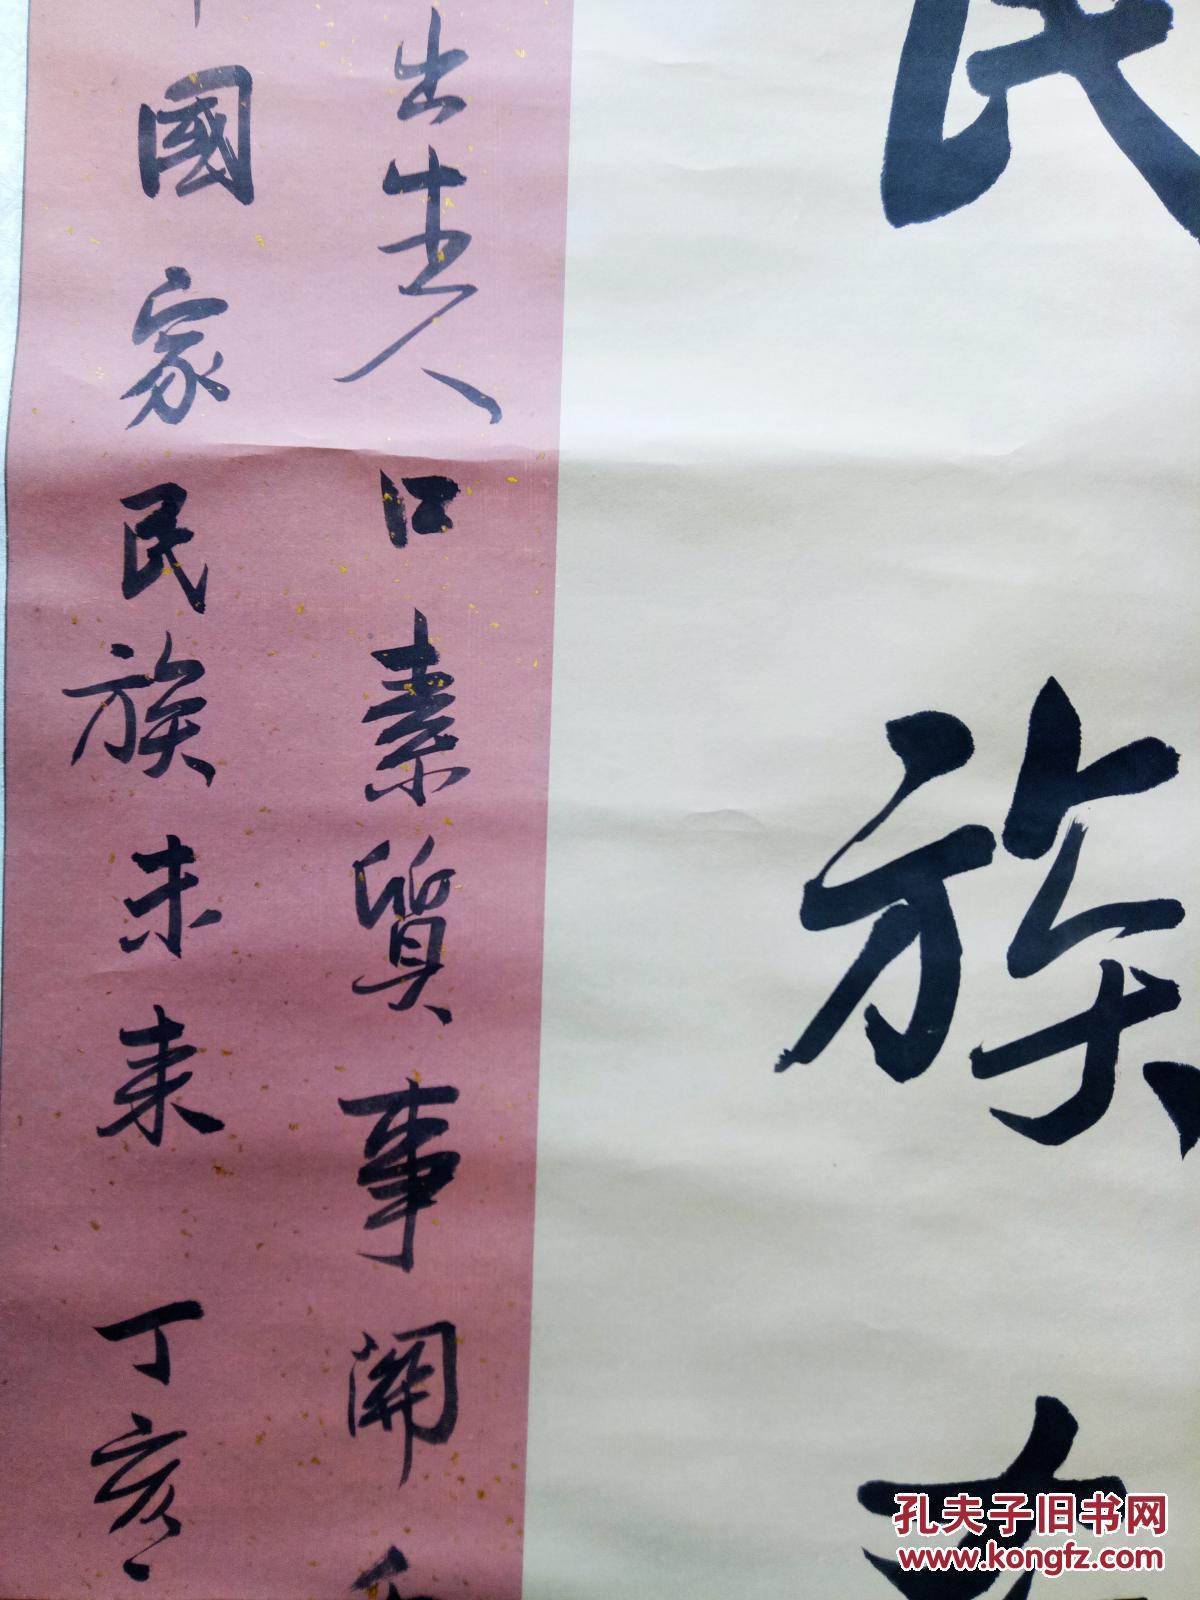 民族
出生人口素質事関
國家民族未来 丁亥
孔夫子旧书网
www.kongfz.com